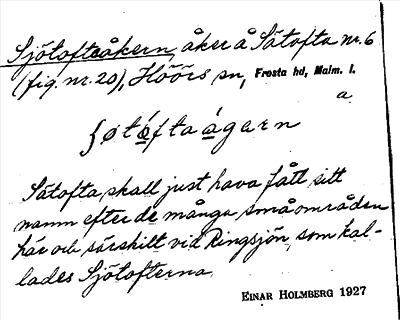 Sjötofteåkern, åker å Sätofta nr. 6
(fig. nr. 20), Höörs sn, Frosta hd, Malm. l.
a.
ʃøtǫ́ftaágarn
Sätofta skall just hava fått sitt
namn efter de många småområden
här och särskilt vid Ringsjön, som kal-
lades Sjötofterna.
EINAR HOLMBERG 1927